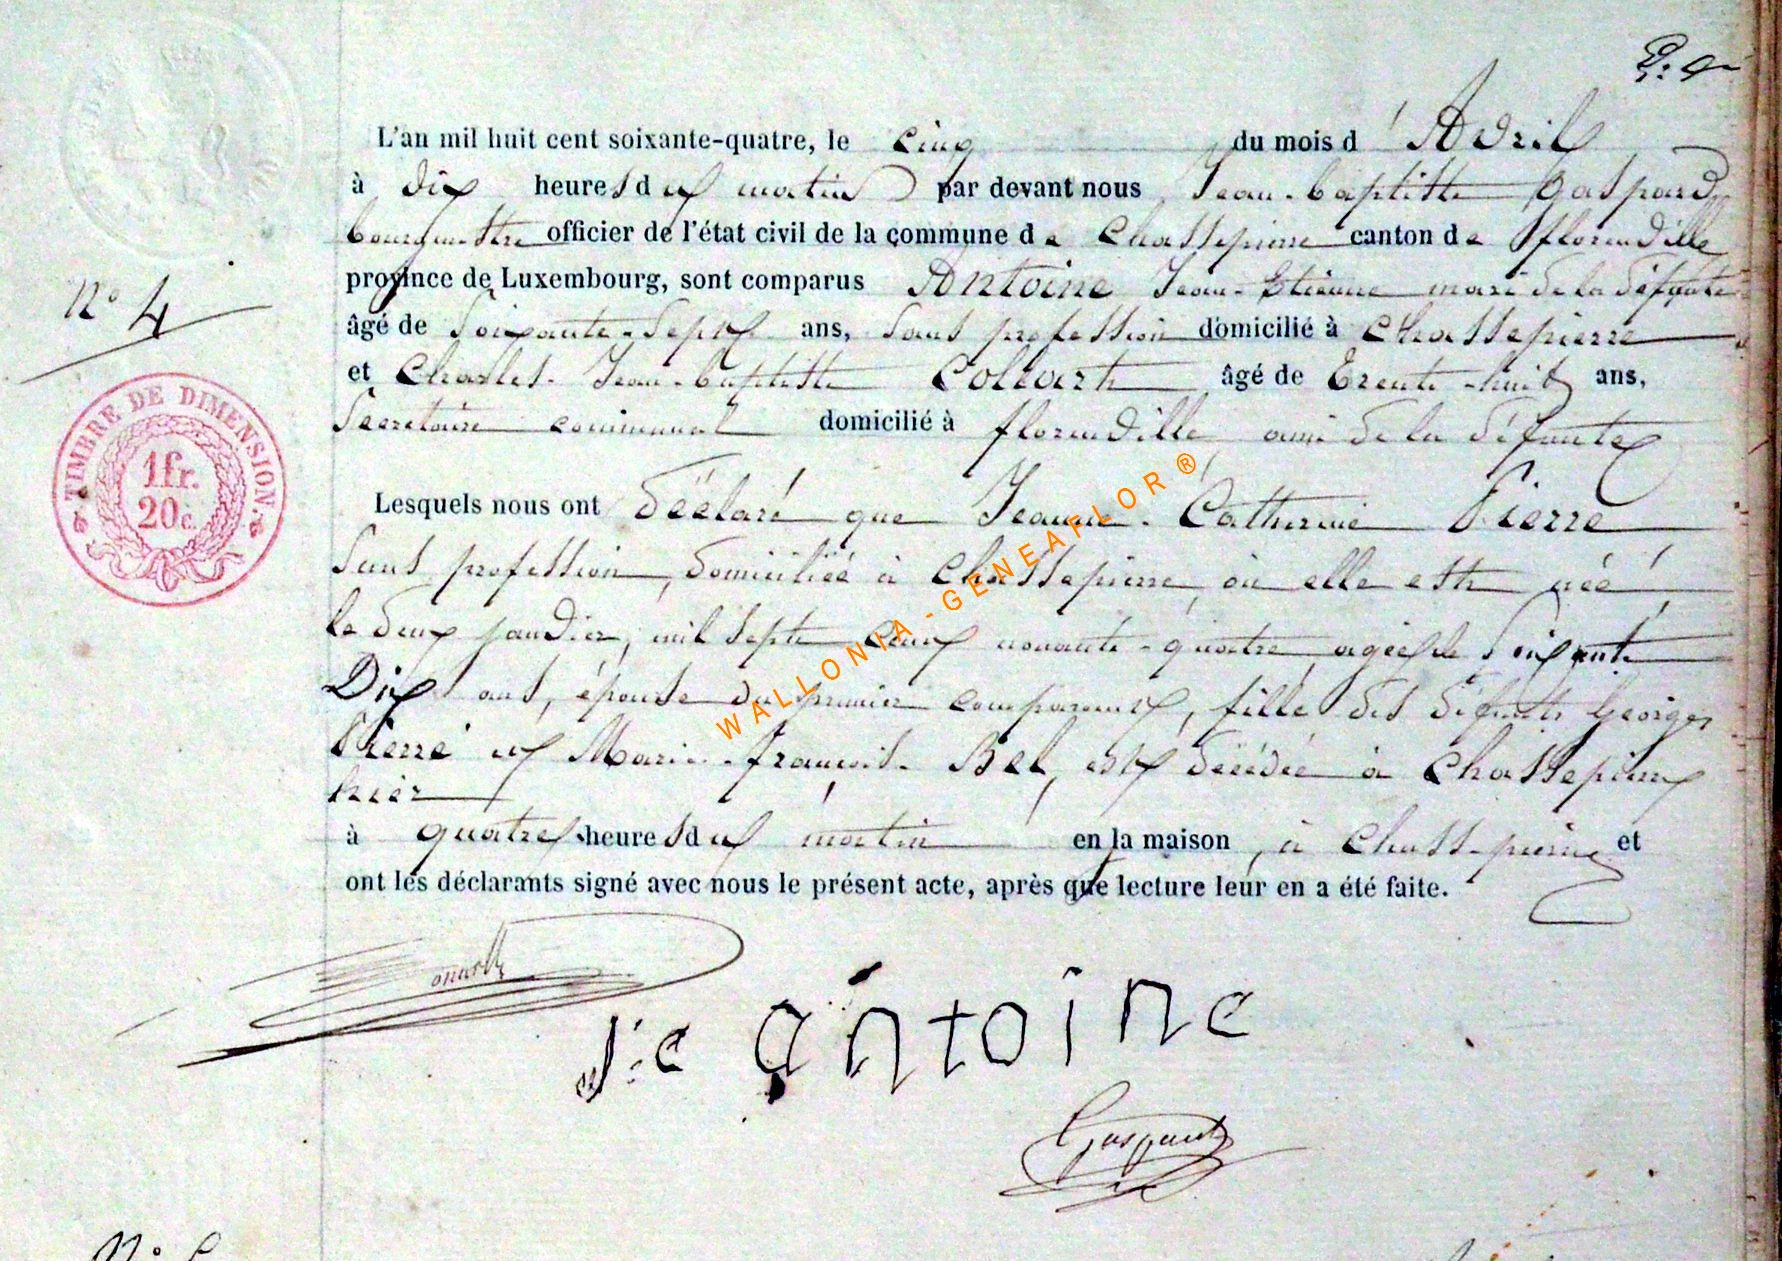 L'an mil huit cent soixante-quatre, le cinq du mois d'Avril
à dix heures du matin par devant nous Jean-baptiste Gaspard
bourgmestre officier de l'état civil de la commune de Chassepierre canton de florendille
province de Luxembourg, sont comparus Antoine Jean-Etienne mari de la défunte
âgé de Soixante-Sept ans, Sans profession domicilié à Chassepierre
et Charles-Jean-baptiste Collart âgé de Trente-huit ans,
Secretaire communal domicilié à florendille ami de la défunte
Lesquels nous ont déclaré que Jeanne-Catherine Pierre
Sans profession, domiciliée à Chassepierre où elle est née
le deux janvier, mil sept cent nonante-quatre, agée de Soixante
Dix ans, épouse du premier comparant, fille des défunts Georges
Pierre et Marie-françoise Bel, est décédée à Chassepierre
hier
à quatre heures du matin en la maison, à Chassepierre et
ont les déclarants signé avec nous le présent acte, après que lecture leur en a été faite.
N° 4
TIMBRE DE DIMENSION.
1 fr.
20 c.
WALLONIA-GENEAFLOR ®
J:e antoine
Gaspard